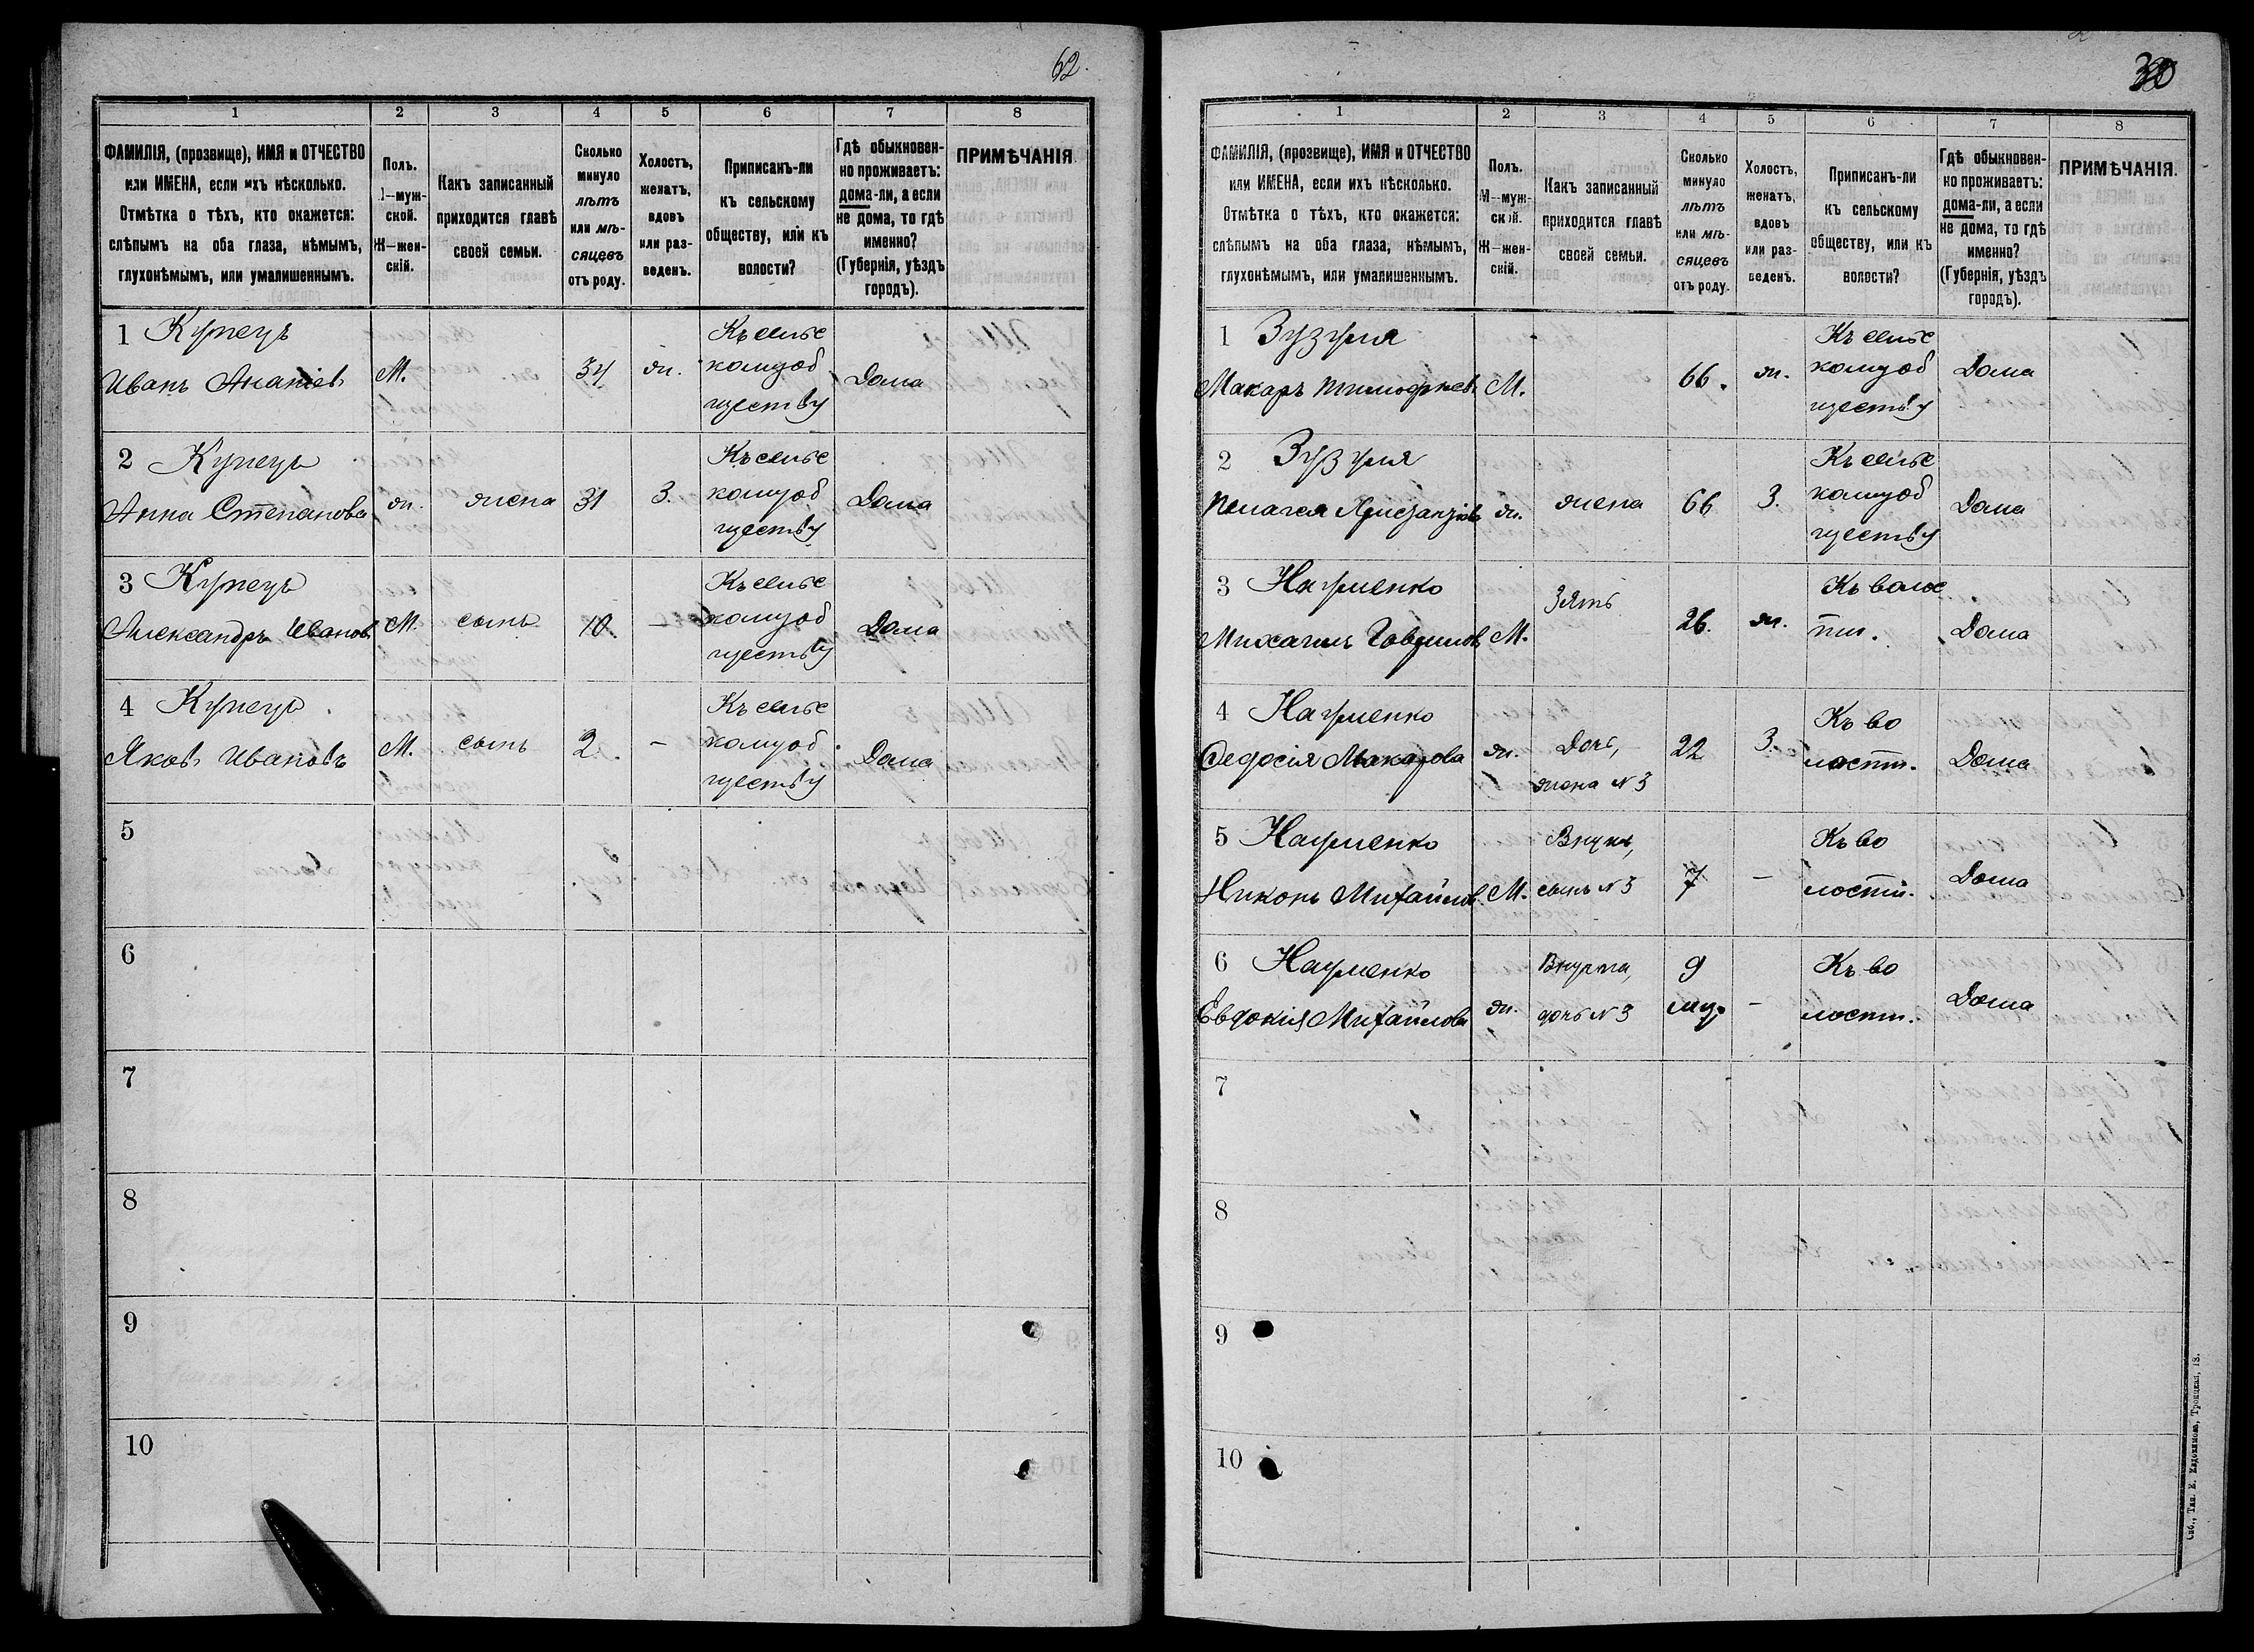 62.
1 2 3 4 5 6 7 8
ФАМИЛІЯ, (прозвище), ИМЯ и ОТЧЕСТВО
или ИМЕНА, если ихъ нѣсколько.
Отмѣтка о тѣхъ, кто окажется:
слѣпымъ на оба глаза, нѣмымъ,
глухонѣмымъ, или умалишеннымъ.
Полъ.
М—муж-
ской.
Ж—жен-
скій.
Какъ записанный
приходится главѣ
своей семьи.
Сколько
минуло
лѣтъ
или мѣ-
сяцевъ
отъ роду.
Холостъ,
женатъ,
вдовъ
или раз-
веденъ.
Приписанъ-ли
къ сельскому
обществу, или къ
волости?
Гдѣ обыкновен-
но проживаетъ:
дома-ли, а если
не дома, то гдѣ
именно?
(Губернія, уѣздъ
городъ).
ПРИМѢЧАНІЯ.
1 Купецъ
Иванъ Ананіев. М. 34 ж.
Къ сельс
комуоб
ществу
Дома
2 Купецъ
Анна Степанова ж. жена 31 З.
Къ сельс
комуоб
ществу
Дома
3 Купецъ
Александръ Иванов. М. сынъ 10. —
Къ сельс
комуоб
ществу
Дома
4 Купецъ
Яковъ Ивановъ М. сынъ 2. —
Къ сельс
комуоб
ществу
Дома
5
6
7
8
9
10
30
1 2 3 4 5 6 7 8
ФАМИЛІЯ, (прозвище), ИМЯ и ОТЧЕСТВО
или ИМЕНА, если ихъ нѣсколько.
Отмѣтка о тѣхъ, кто окажется:
слѣпымъ на оба глаза, нѣмымъ,
глухонѣмымъ, или умалишеннымъ.
Полъ.
М—муж-
ской.
Ж—жен-
скій.
Какъ записанный
приходится главѣ
своей семьи.
Сколько
минуло
лѣтъ
или мѣ-
сяцевъ
отъ роду.
Холостъ,
женатъ,
вдовъ
или раз-
веденъ.
Приписанъ-ли
къ сельскому
обществу, или къ
волости?
Гдѣ обыкновен-
но проживаетъ:
дома-ли, а если
не дома, то гдѣ
именно?
(Губернія, уѣздъ
городъ).
ПРИМѢЧАНІЯ.
1 Зузуля
Макаръ Тимофеев. М. 66. ж.
Къ сельс
комуоб
ществу
Дома
2 Зузуля
Пелагея ж. жена 66 З.
Къ сельс
комуоб
ществу
Дома
3 Науменко
Михаилъ Гаврилов. М. Зять 26. ж.
Къ волос
ти.
Дома
4 Науменко
Федосія Макарова ж. Дочь,
жена №3 22 З.
Къ во
лости.
Дома
5 Науменко
Никонъ Михайлов. М. Внукъ,
сынъ №3 7 —
Къ во
лости.
Дома
6 Науменко
Евдокія Михайлова ж. Внучка,
дочь №3 9
мц. —
Къ во
лости.
Дома
7
8
9
10
Спб., Тип. Е. Евдокимова, Троицкая, 18.